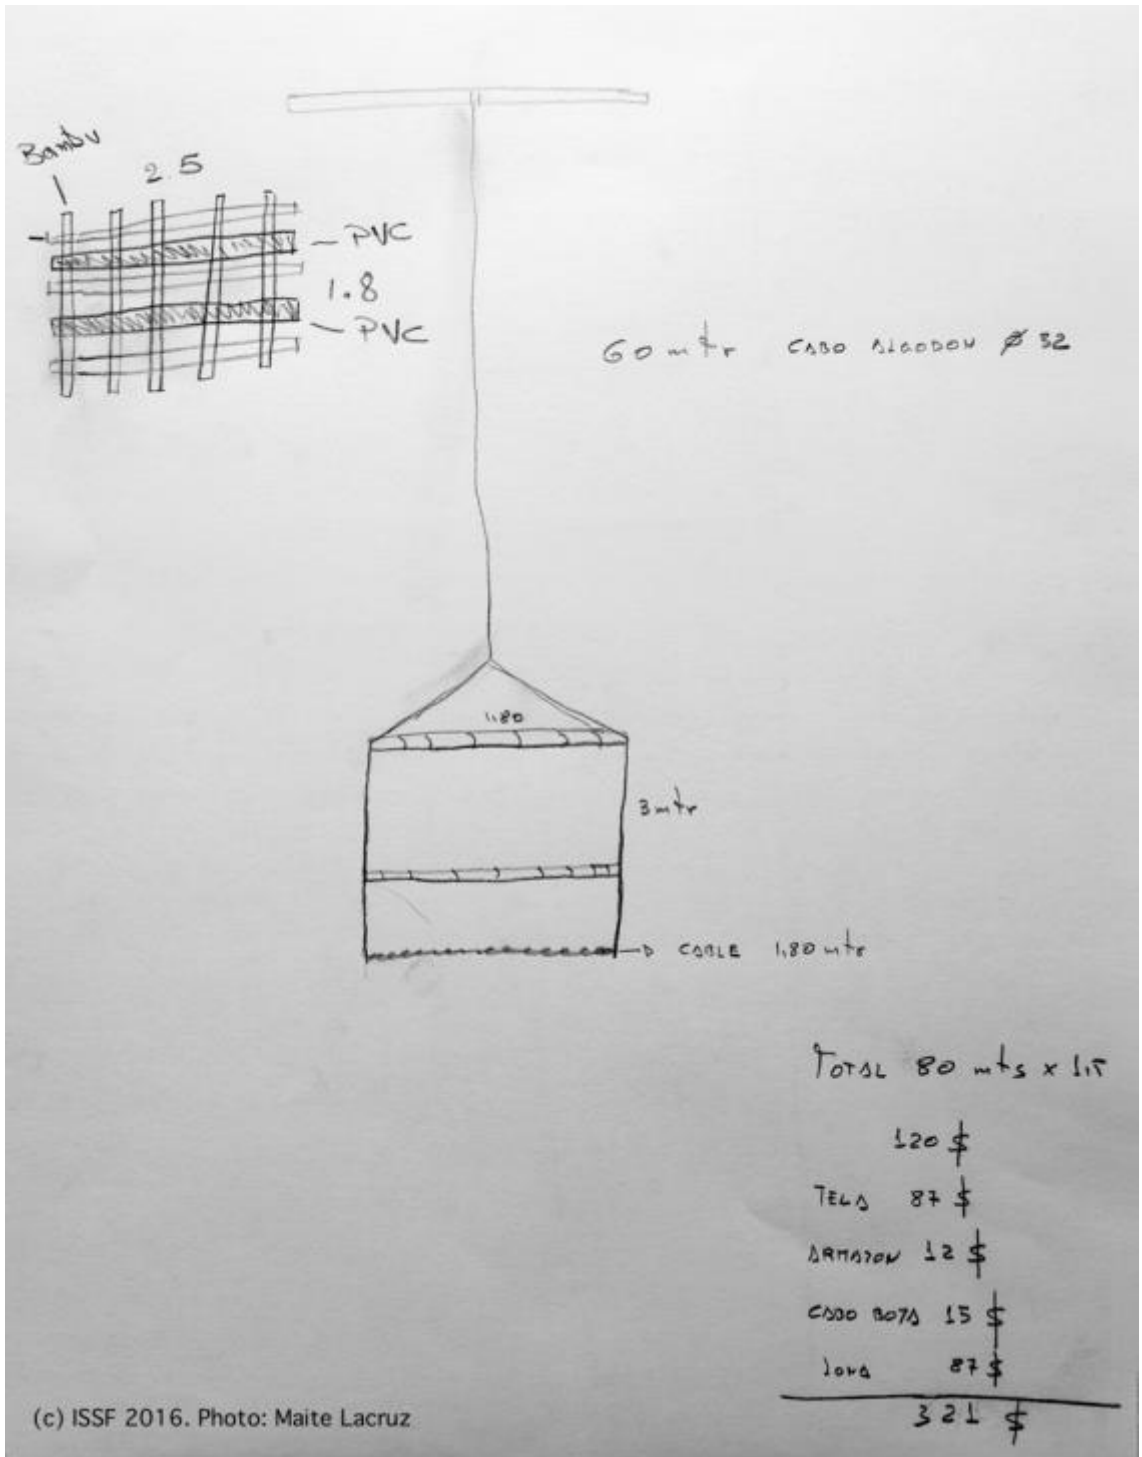 Bambu
2.5
PVC
1.8
PVC
60 mtr CABO ALGODON Ø 32
1,80
3 mtr
CABLE 1,80 mtr
TOTAL 80 mts x 1,5
120 $
TELA 87 $
ARMAZON 12 $
CABO BOTA 15 $
LONA 87 $
321 $
(c) ISSF 2016. Photo: Maite Lacruz